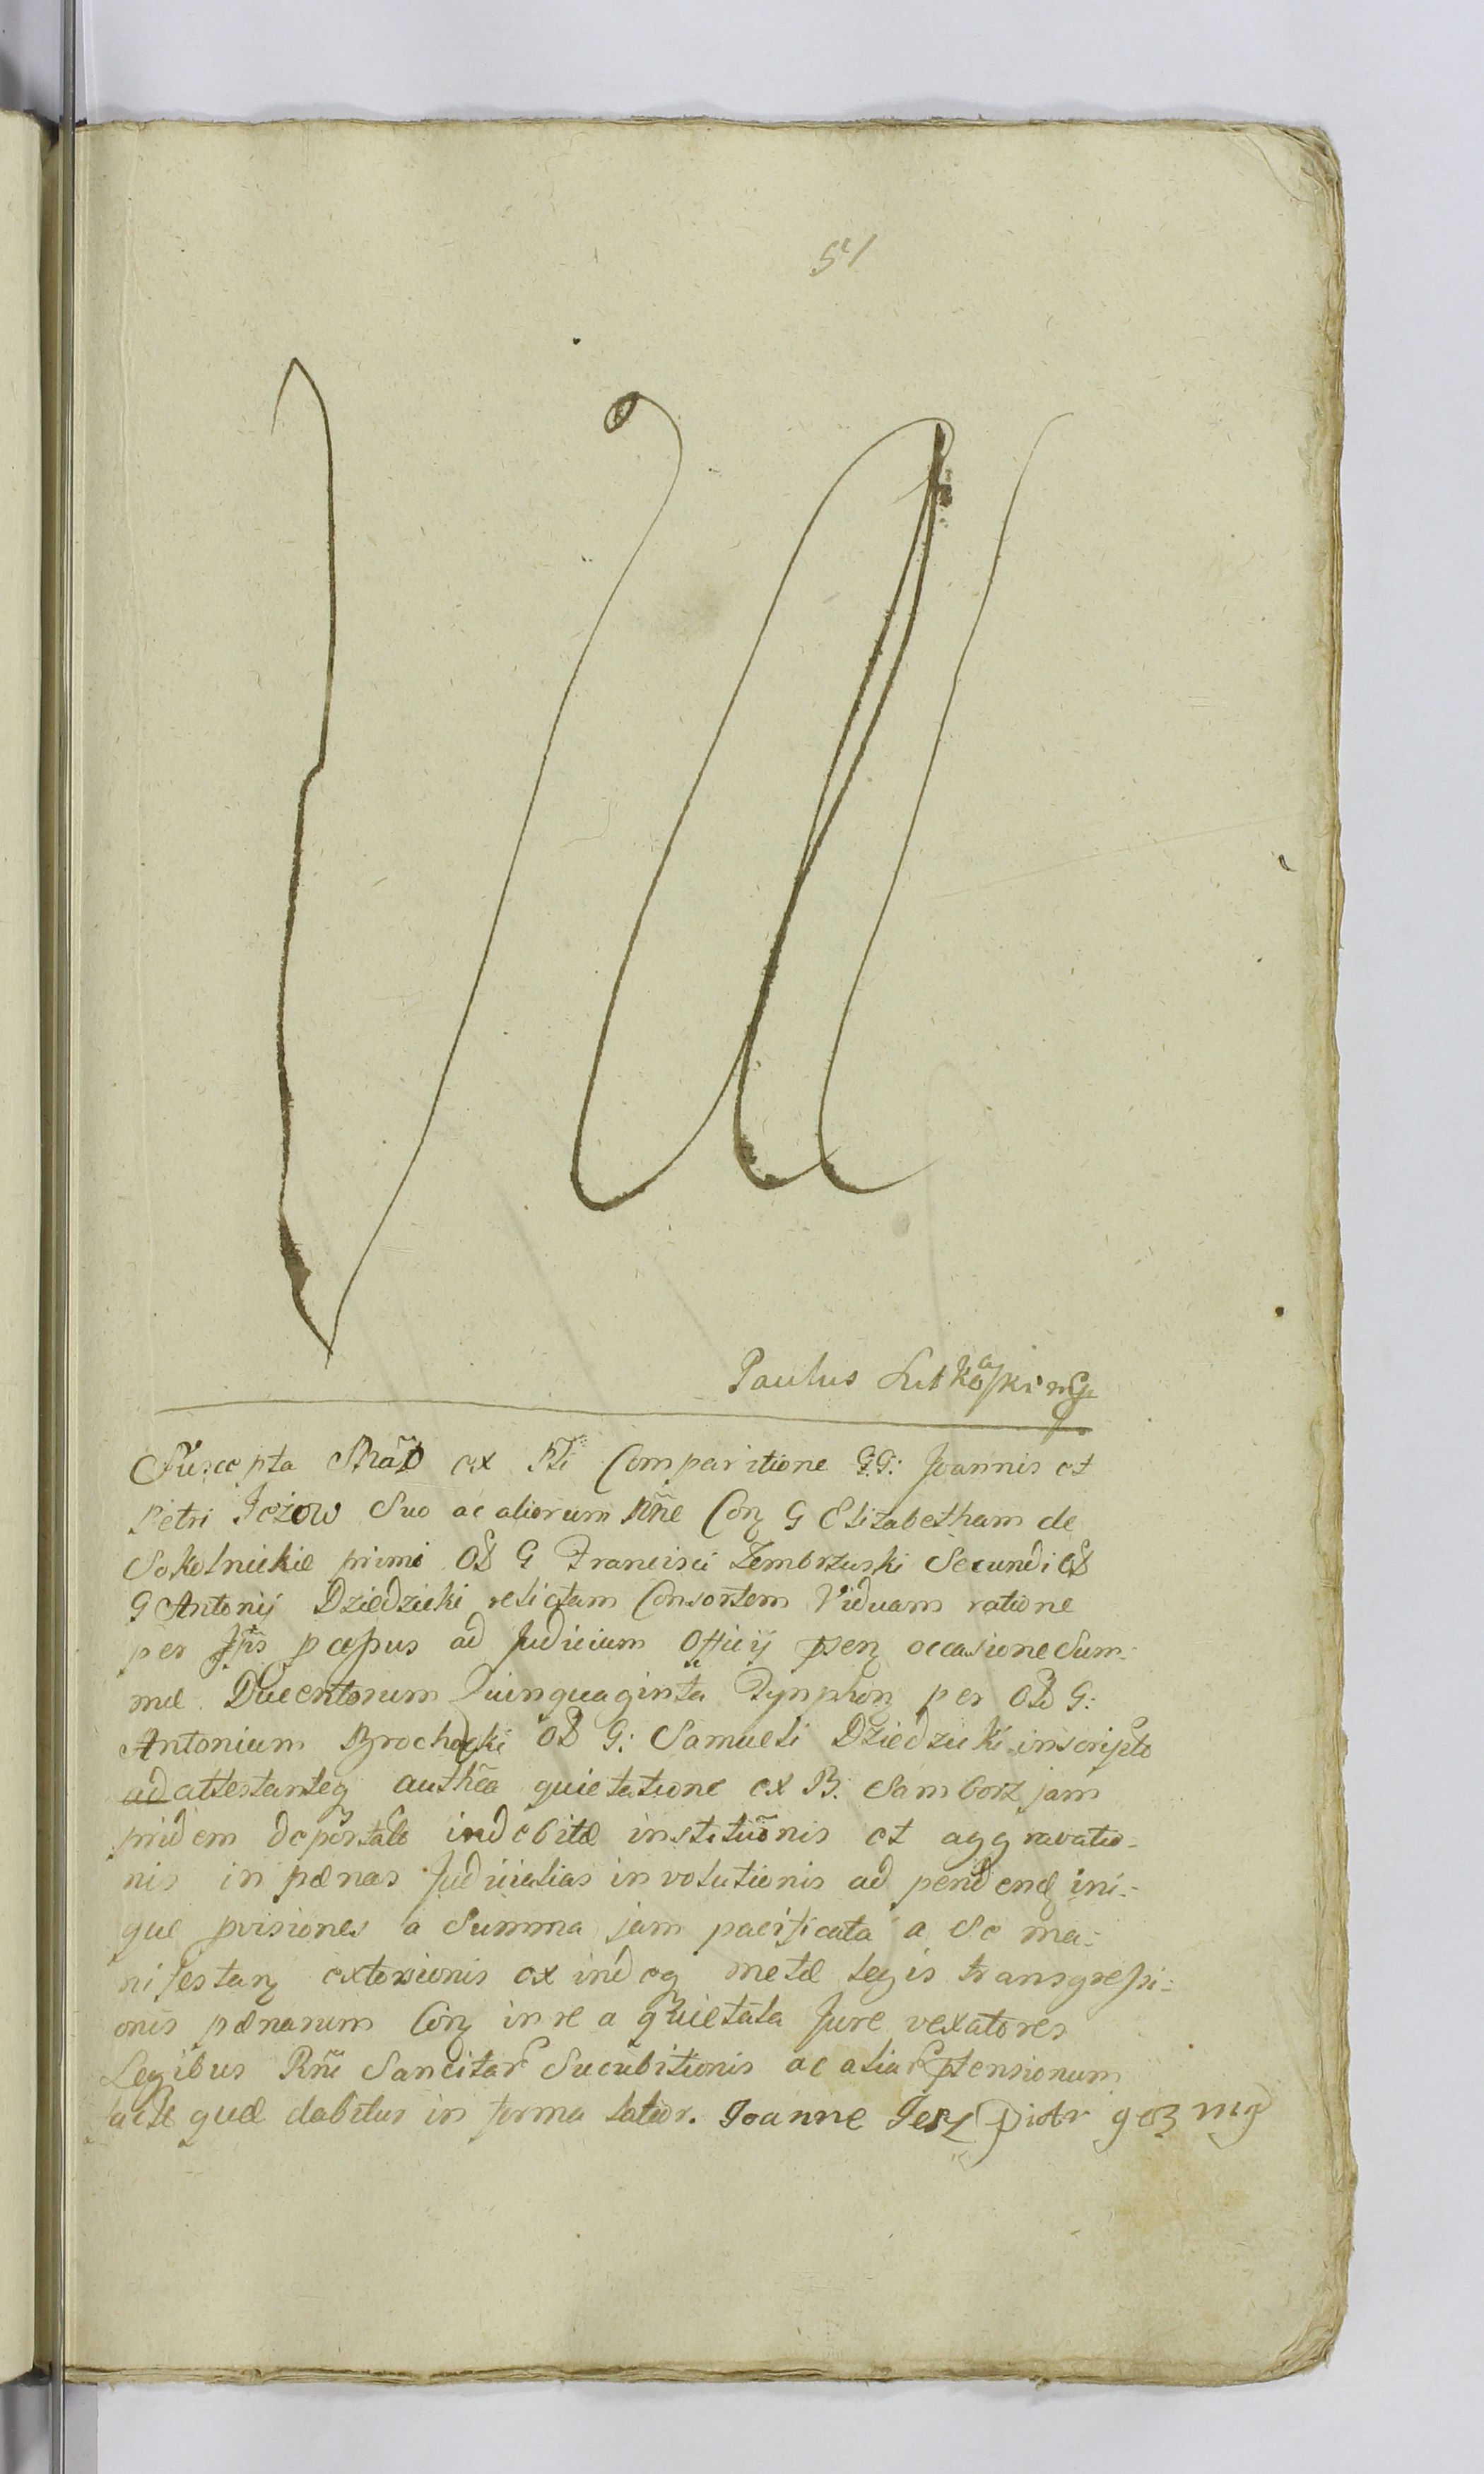 51
Paulus Lutko
Suscepta ex Comparitione GG: Joannis et
Petri Jezow Suo ac aliorum nñe Con G Elizabetham de
Sokolnickie primi OL G Francisci Zembrzuski Secundi OL
G Antonij Dziedzicki relictam Consortem Viduam ratione
per ad Judicium Officij occasione Sum-
mæ Ducentorum Quinquaginta Tynphon per OL G:
Antonium Brochocki OL G: Samueli Dziedzicki inscripto
ad attestanteq authca quietatione ex B. Samborz jam
pridem deportato indebitæ institũonis et aggravatio-
nis in pænas Judicialias involutionis ad pendenq ini-
que pvisiones a Summa jam pacificata a Se ma-
nifestanz extorsionis ex indeq metæ legis transgressi-
onis pænarum Con in re a quietata Jure vexatores
Legibus Rñi Sancitar Sucubitionis ac aliar ptensionum
quæ dabitur in forma latior. Joanne Jerz Piotr